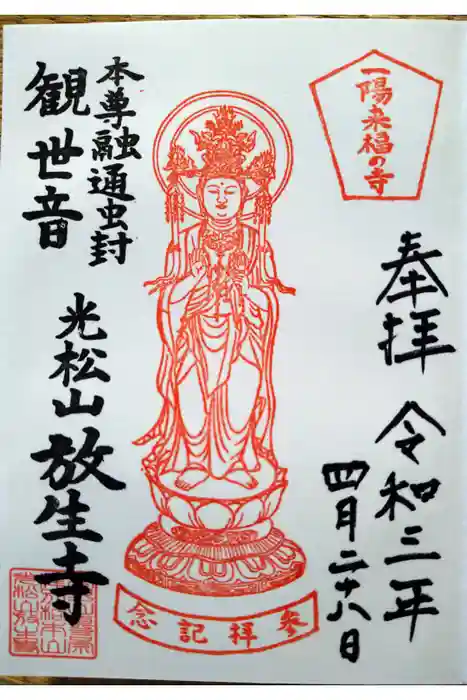 一陽来福の寺
奉拝
令和三年
四月二十八日
本尊融通虫封
観世音
光松山
放生寺
參拝記念